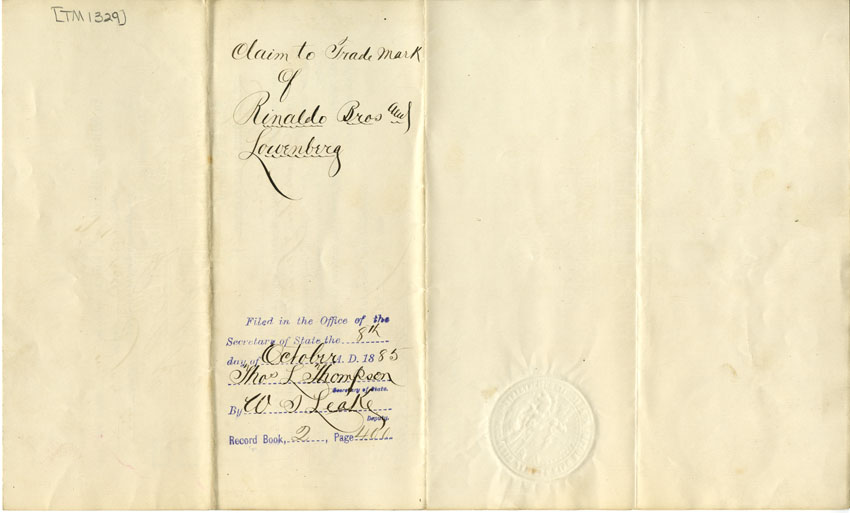 [TM1329]
Claim to Trade Mark
of
Rinaldo Bros and
Lowenberg
Filed in the Office of the
Secretary of State the 8th
day of October A. D. 1885
Thos L Thompson
Secretary of State.
By W S Leake
Deputy.
Record Book, 2, Page